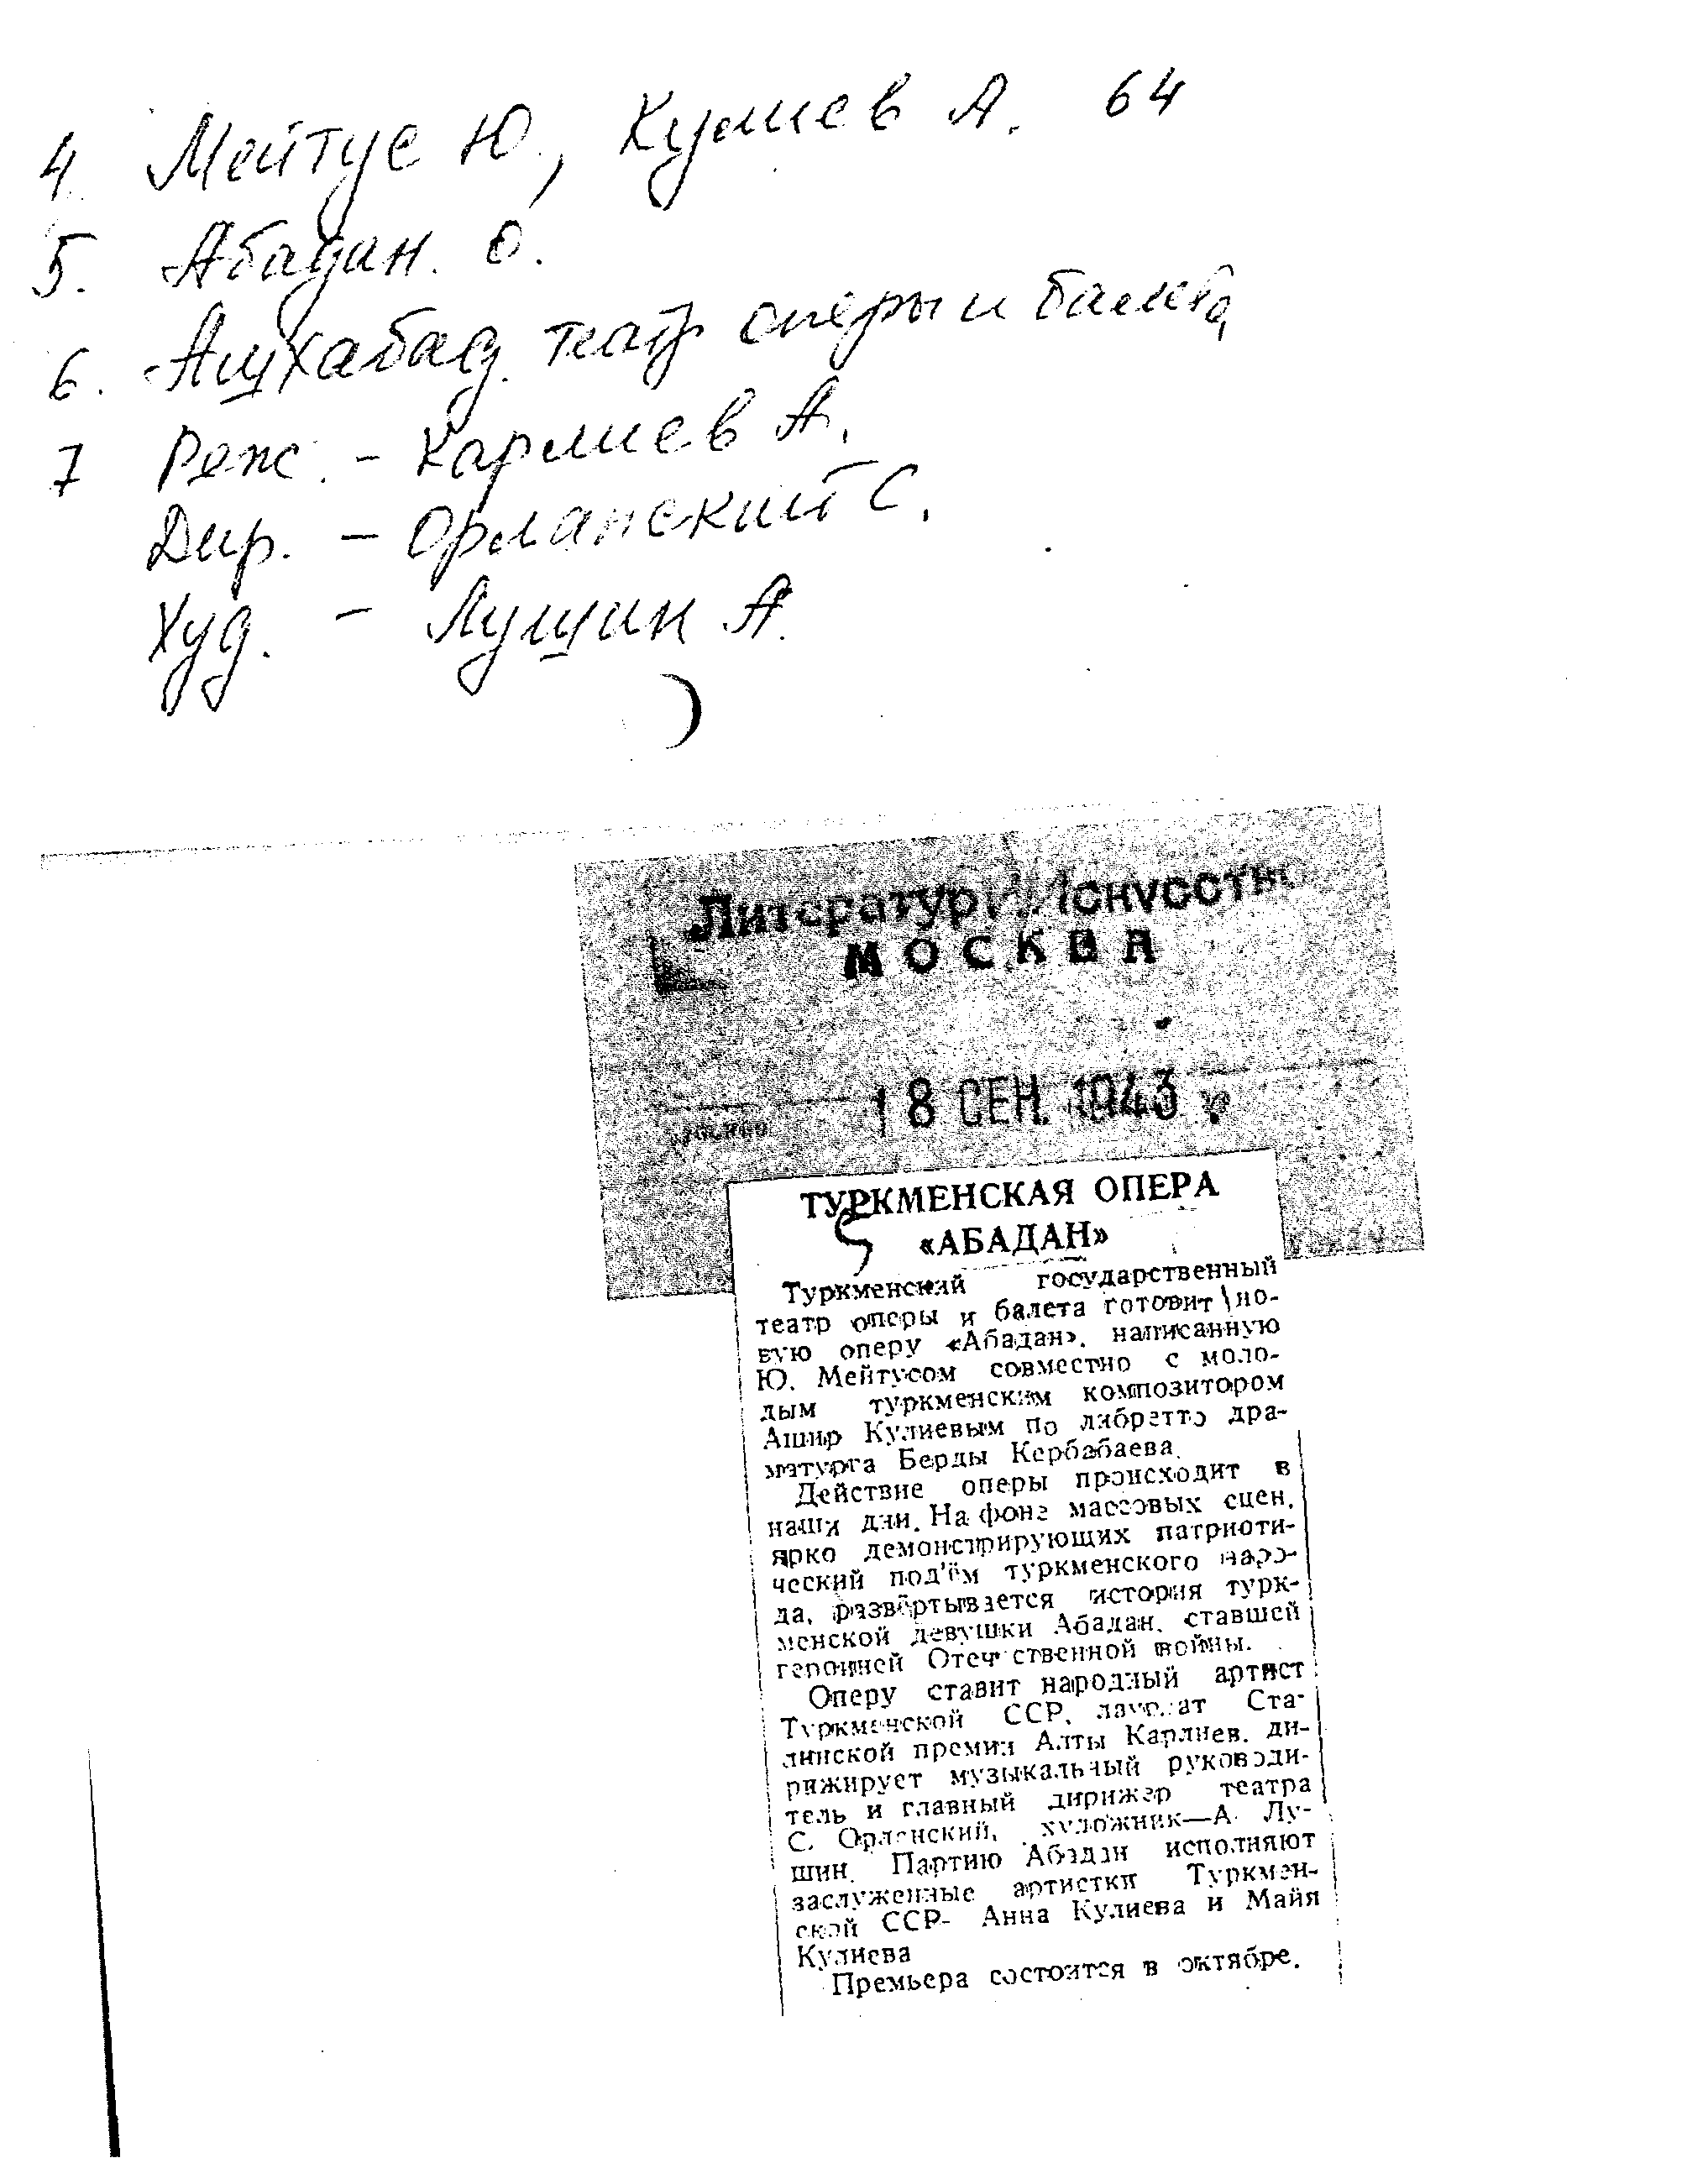 4. Мейтус Ю., Кулиев А. 64
5. Абадан. О.
6. Ашхабад. театр оперы и балета
7 Реж. - Карлиев А.
Дир. - Орланский С.
Худ. - Лушин А.
Литератур И Искусство
МОСКВА
18 СЕН. 1943
ТУРКМЕНСКАЯ ОПЕРА
«АБАДАН»
Туркменский государственный
театр оперы и балета готовит но-
вую оперу «Абадан», написанную
Ю. Мейтусом совместно с моло-
дым туркменским композитором
Ашир Кулиевым по либретто дра-
матурга Берды Кербабаева.
Действие оперы происходит в
наши дни. На фоне массовых сцен,
ярко демонстрирующих патриоти-
ческий под'ём туркменского наро-
да, развёртывается история турк-
менской девушки Абадан, ставшей
героиней Отечественной войны.
Оперу ставит народный артист
Туркменской ССР, лауреат Ста-
линской премии Алты Карлиев, ди-
рижирует музыкальный руководи-
тель и главный дирижер театра
С. Орланский, художник—А. Лу-
шин. Партию Абадан исполняют
заслуженные артистки Туркмен-
ской ССР- Анна Кулиева и Майя
Кулиева
Премьера состоится в октябре.